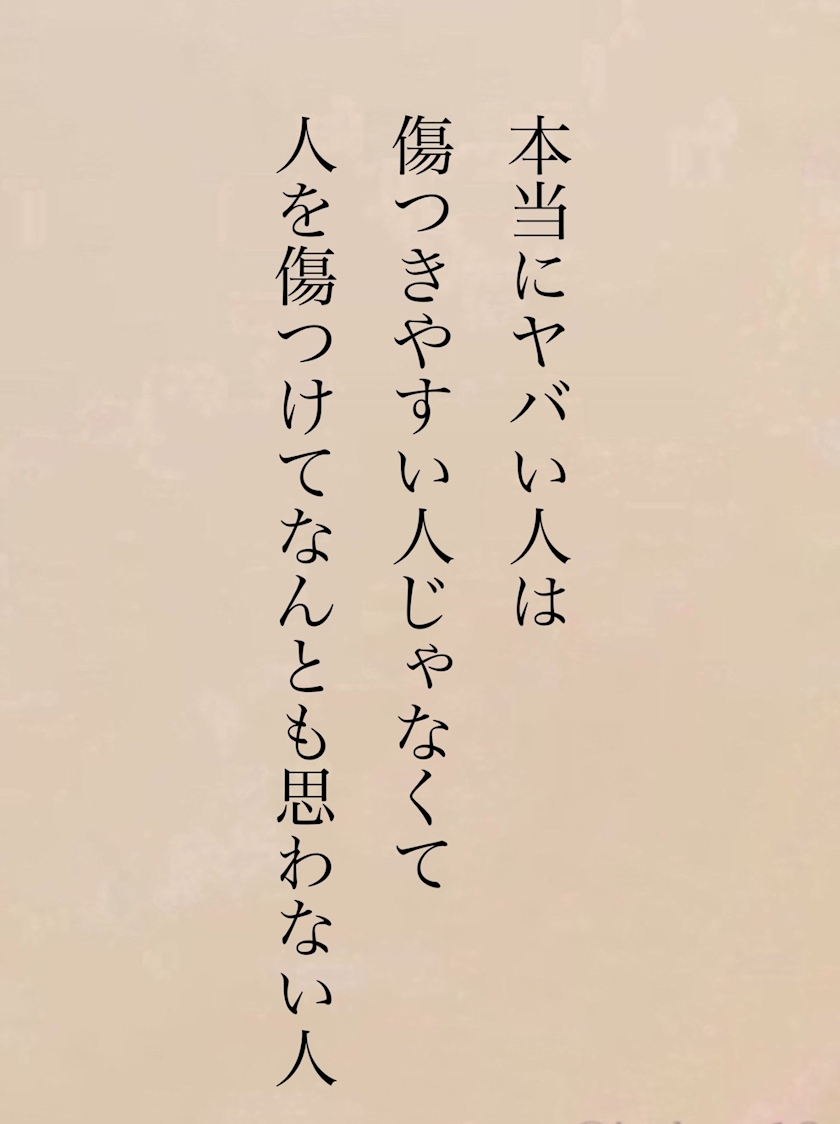 本当にヤバい人は
傷つきやすい人じゃなくて
人を傷つけてなんとも思わない人